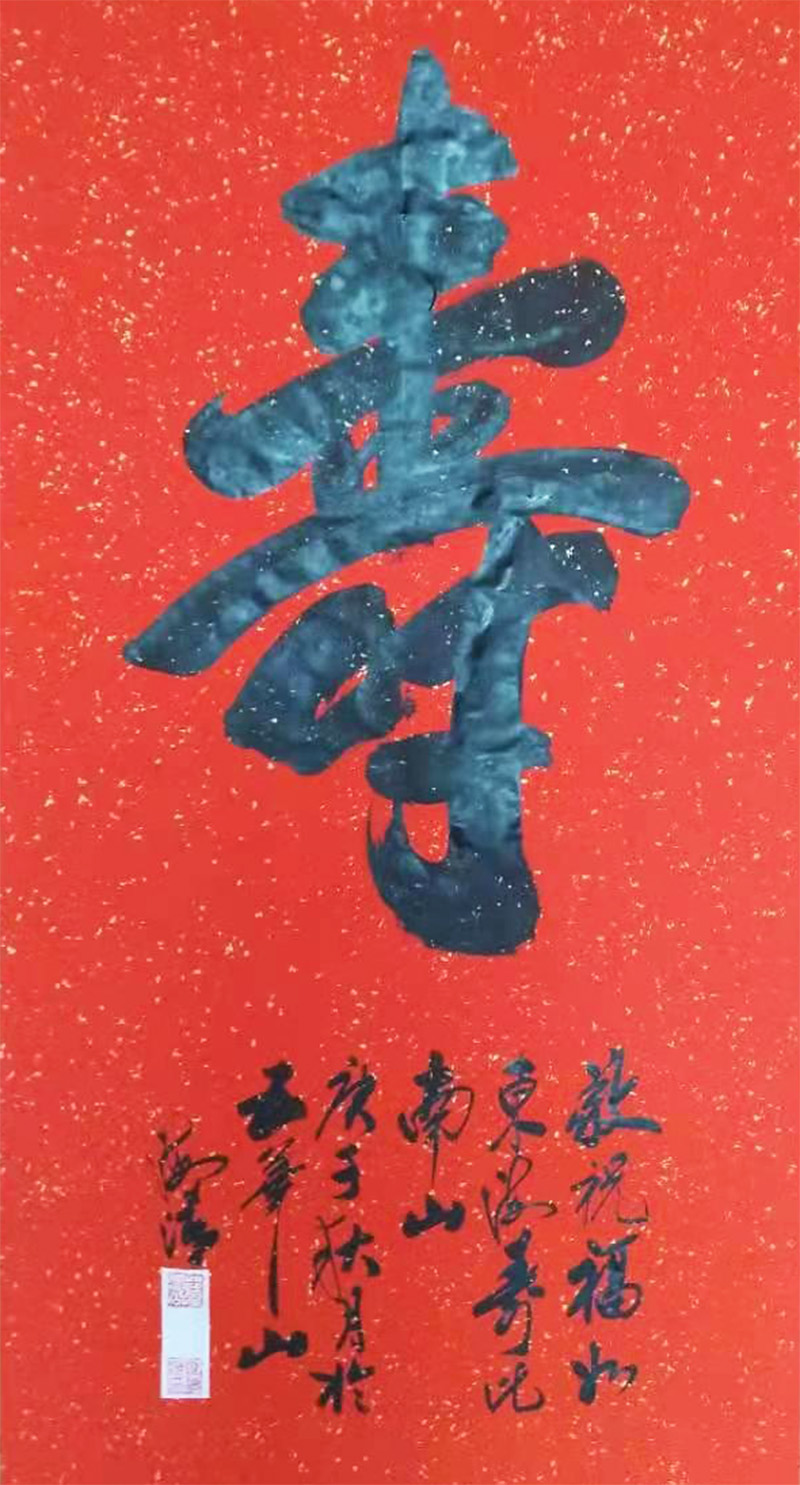 寿
敬祝福如
东海寿比
南山
庚子秋月於
五華山
海清